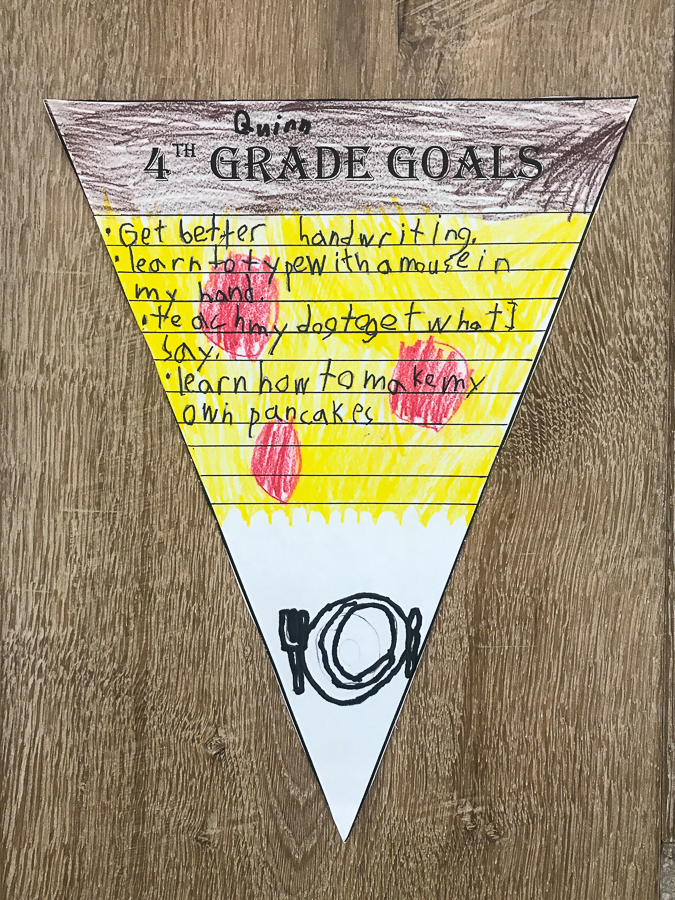 Quinn
4TH GRADE GOALS
• Get better handwriting.
• learn to type with a mouse in
my hand.
• teach my dog to get what I
say.
• learn how to make my
own pancakes